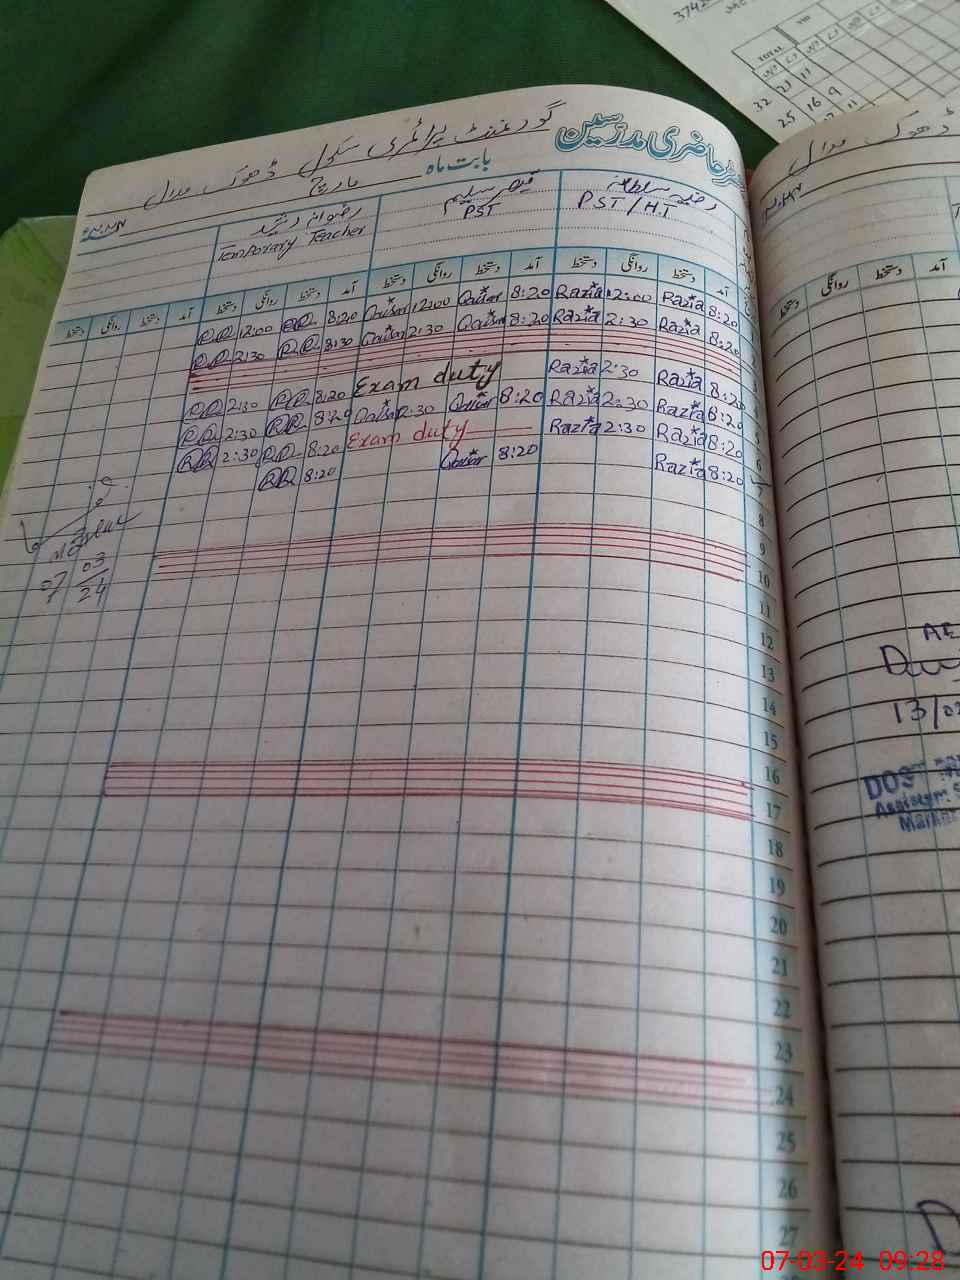 رجسٹر حاضری مدرسین
گورنمنٹ پرائمری سکول ڈھوک مدال
بابت ماہ مارچ ۲۰۲۴ء
رضیہ سلطانہ PST/H.T
قیصر سلیم PST
Temporary Teacher
آمد دستخط روانگی دستخط آمد دستخط روانگی دستخط آمد دستخط روانگی دستخط آمد دستخط روانگی دستخط
RR 12:00 RR 8:20 Qaisar 12:00 Qaisar 8:20 Razia 12:00 Razia 8:20
RR 2:30 RR 8:30 Qaisar 2:30 Qaisar 8:20 Razia 2:30 Razia 8:20
RR 2:30 RR 8:20 Exam duty Razia 2:30 Razia 8:20
RR 2:30 RR 8:20 Qaisar 2:30 Qaisar 8:20 Razia 2:30 Razia 8:20
RR 2:30 RR 8:20 Exam duty Razia 2:30 Razia 8:20
RR 8:20 Qaisar 8:20 Razia 8:20
07 03
24
6
7
8
9
10
11
12
13
14
15
16
17
18
19
20
21
22
23
24
25
26
27
TOTAL
32 21 11
25 16 9
ڈھوک مدال
آمد دستخط روانگی دستخط
13/02
07-03-24 09:28